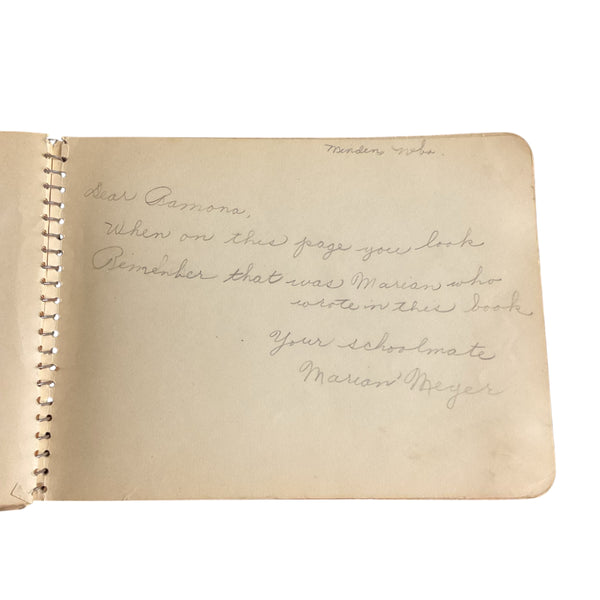 Minden, Nebr.
Dear Ramona,
When on this page you look
Remember that was Marian who
wrote in this book
Your schoolmate
Marian Meyer